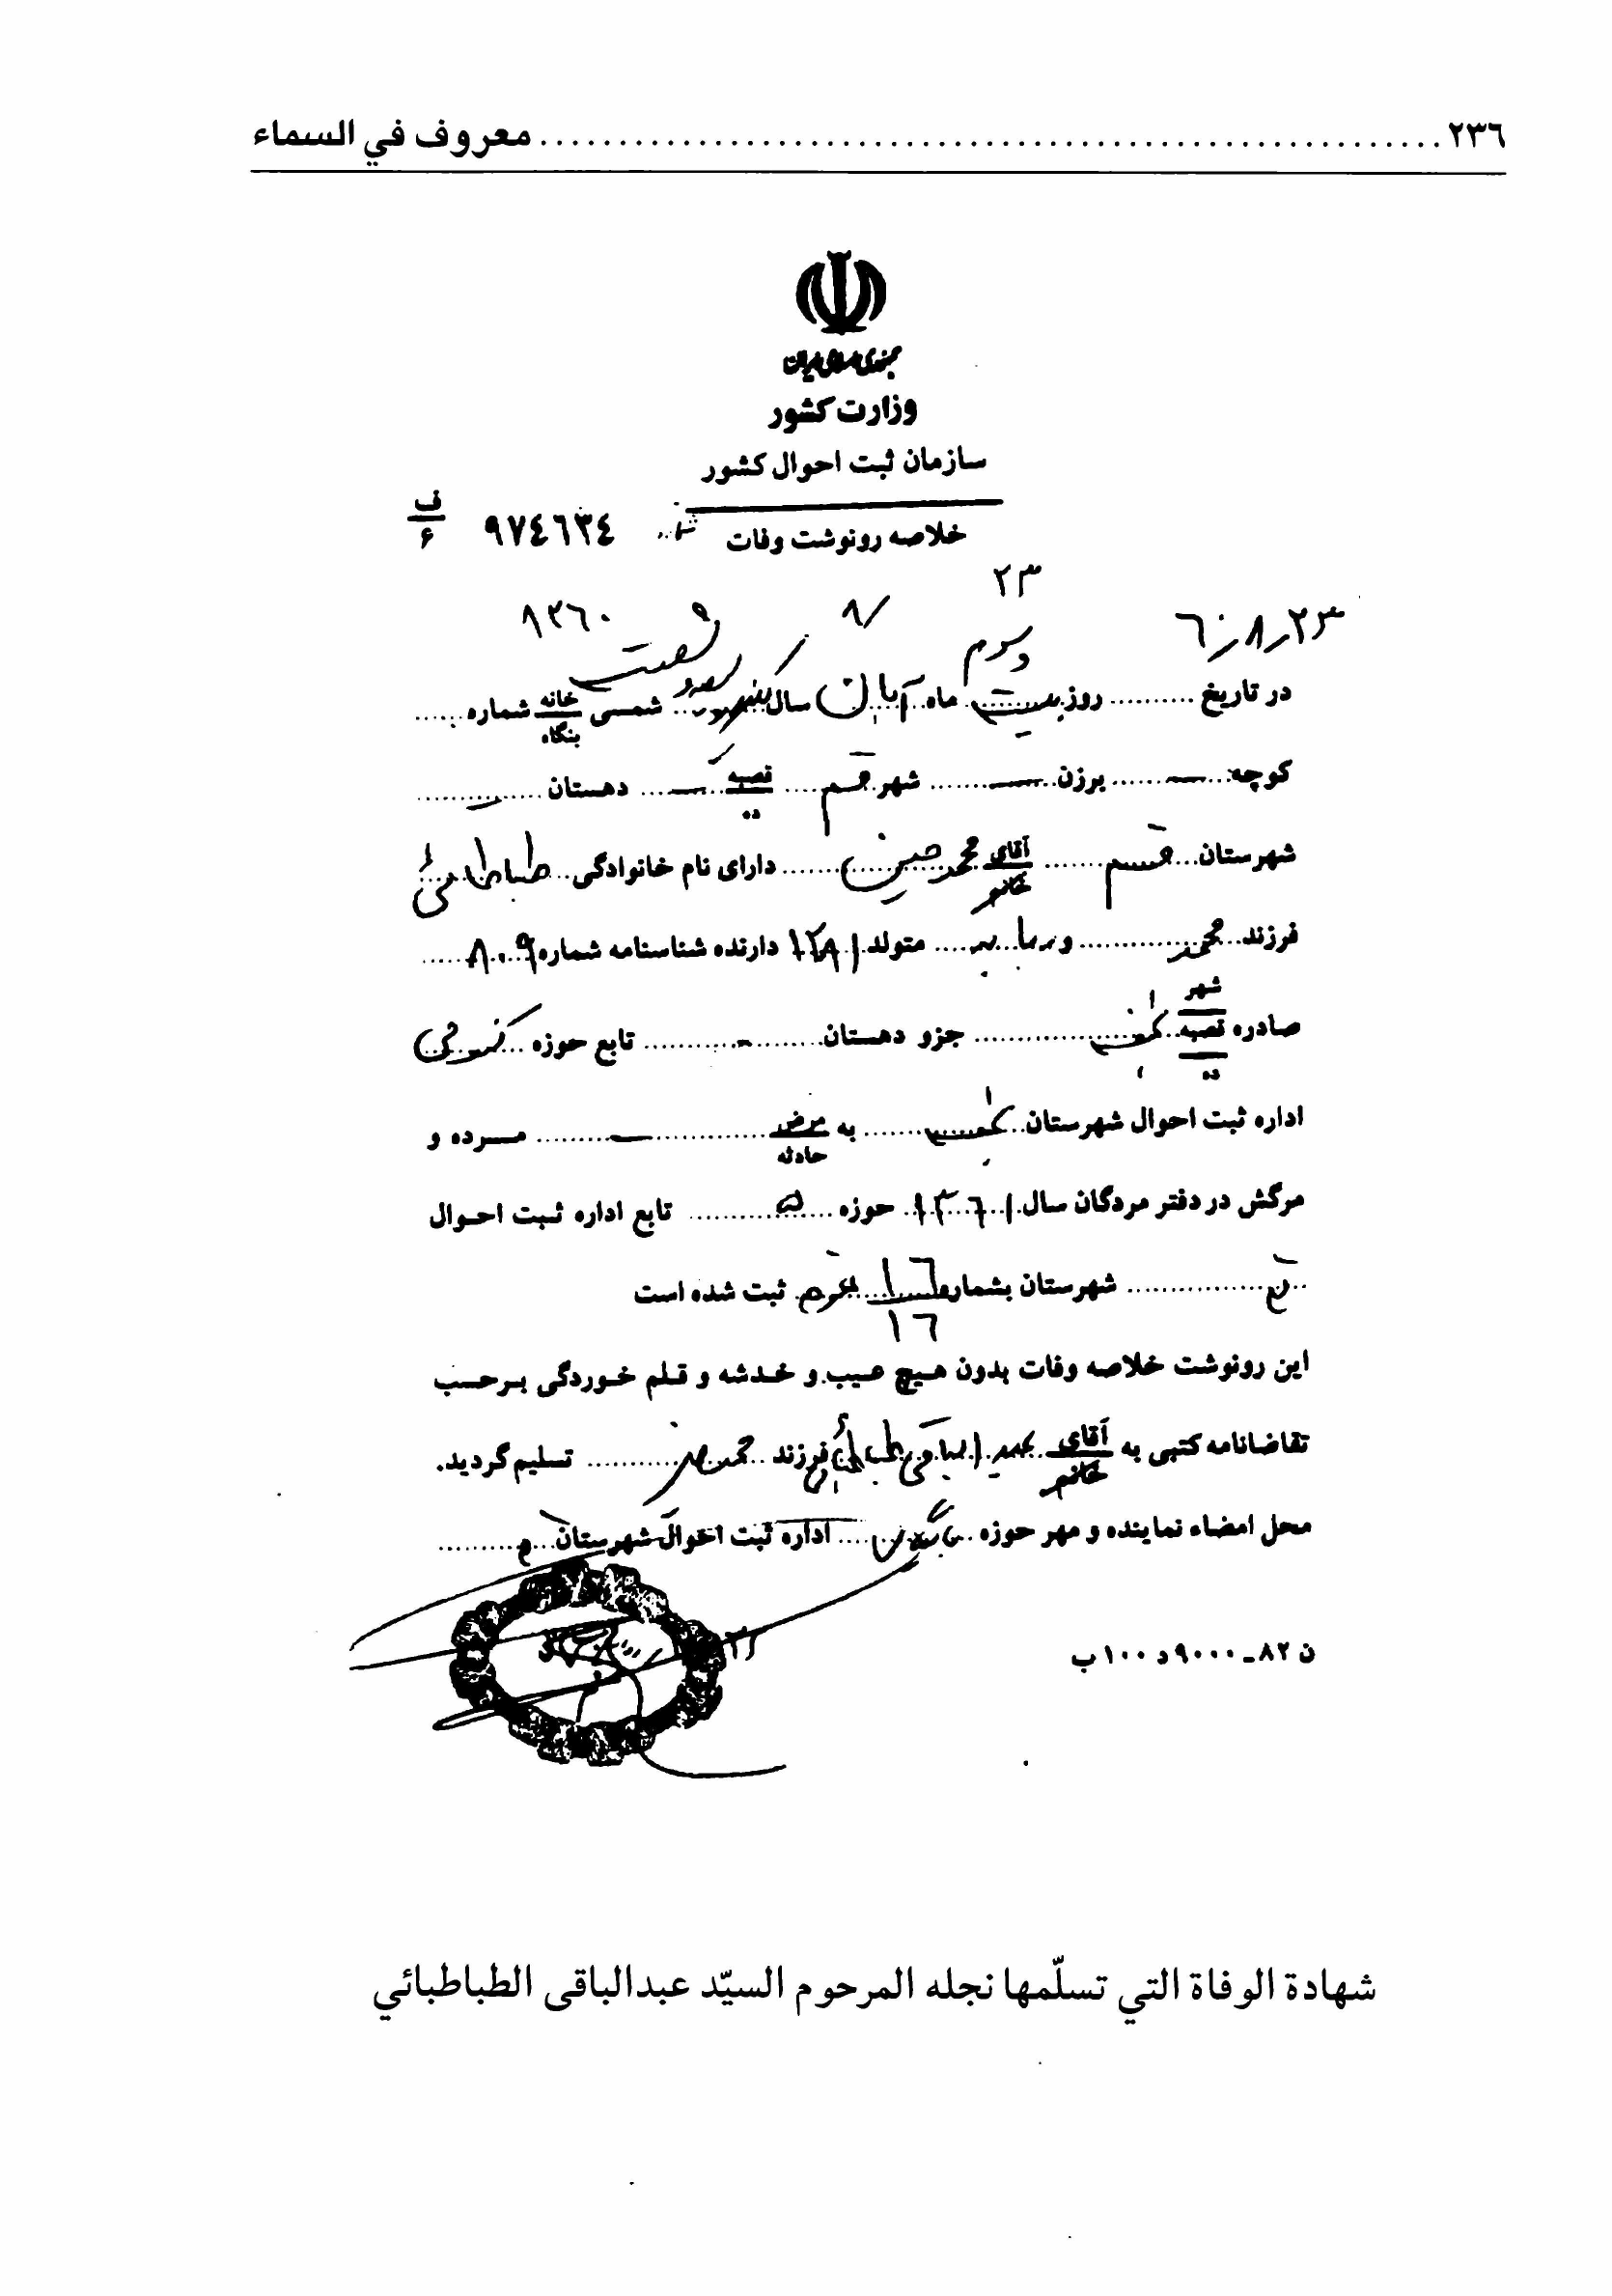 ٢٣٦ معروف في السماء
جمهوری اسلامی ایران
وزارت کشور
سازمان ثبت احوال کشور
خلاصه رونوشت وفات ٩٧٤٦٣٤ ف/۶
٢٣
٦٠/٨/٢٣ ٨/ ١٣٦٠
در تاریخ .......... روز بیست و سوم ماه آبان سال یکهزار و سیصد و شصت شمسی خانه/بنگاه شماره ......
کوچه — برزن — شهر قم قصبه/ده — دهستان —
شهرستان قم آقای/خانم محمد حسین دارای نام خانوادگی طباطبائی
فرزند محمد و متولد ١٢٨١ دارنده شناسنامه شماره ٨٠٩
صادره شهر/قصبه/ده جزو دهستان - تابع حوزه
اداره ثبت احوال شهرستان به مرض/حادثه — مرده و
مرگش در دفتر مردگان سال ١٣٦١ حوزه ۵ تابع اداره ثبت احوال
قم شهرستان بشماره ١٦ ثبت شده است
١٦
این رونوشت خلاصه وفات بدون هیچ عیب و خدشه و قلم خوردگی برحسب
تقاضانامه کتبی به آقای/خانم سید عبدالباقی طباطبائی فرزند محمد حسین تسلیم گردید.
محل امضاء نماینده و مهر حوزه اداره ثبت احوال شهرستان قم
ن ٨٢ـ ٩٠٠٠د ١٠٠ب
شهادة الوفاة التي تسلّمها نجله المرحوم السيّد عبدالباقی الطباطبائي